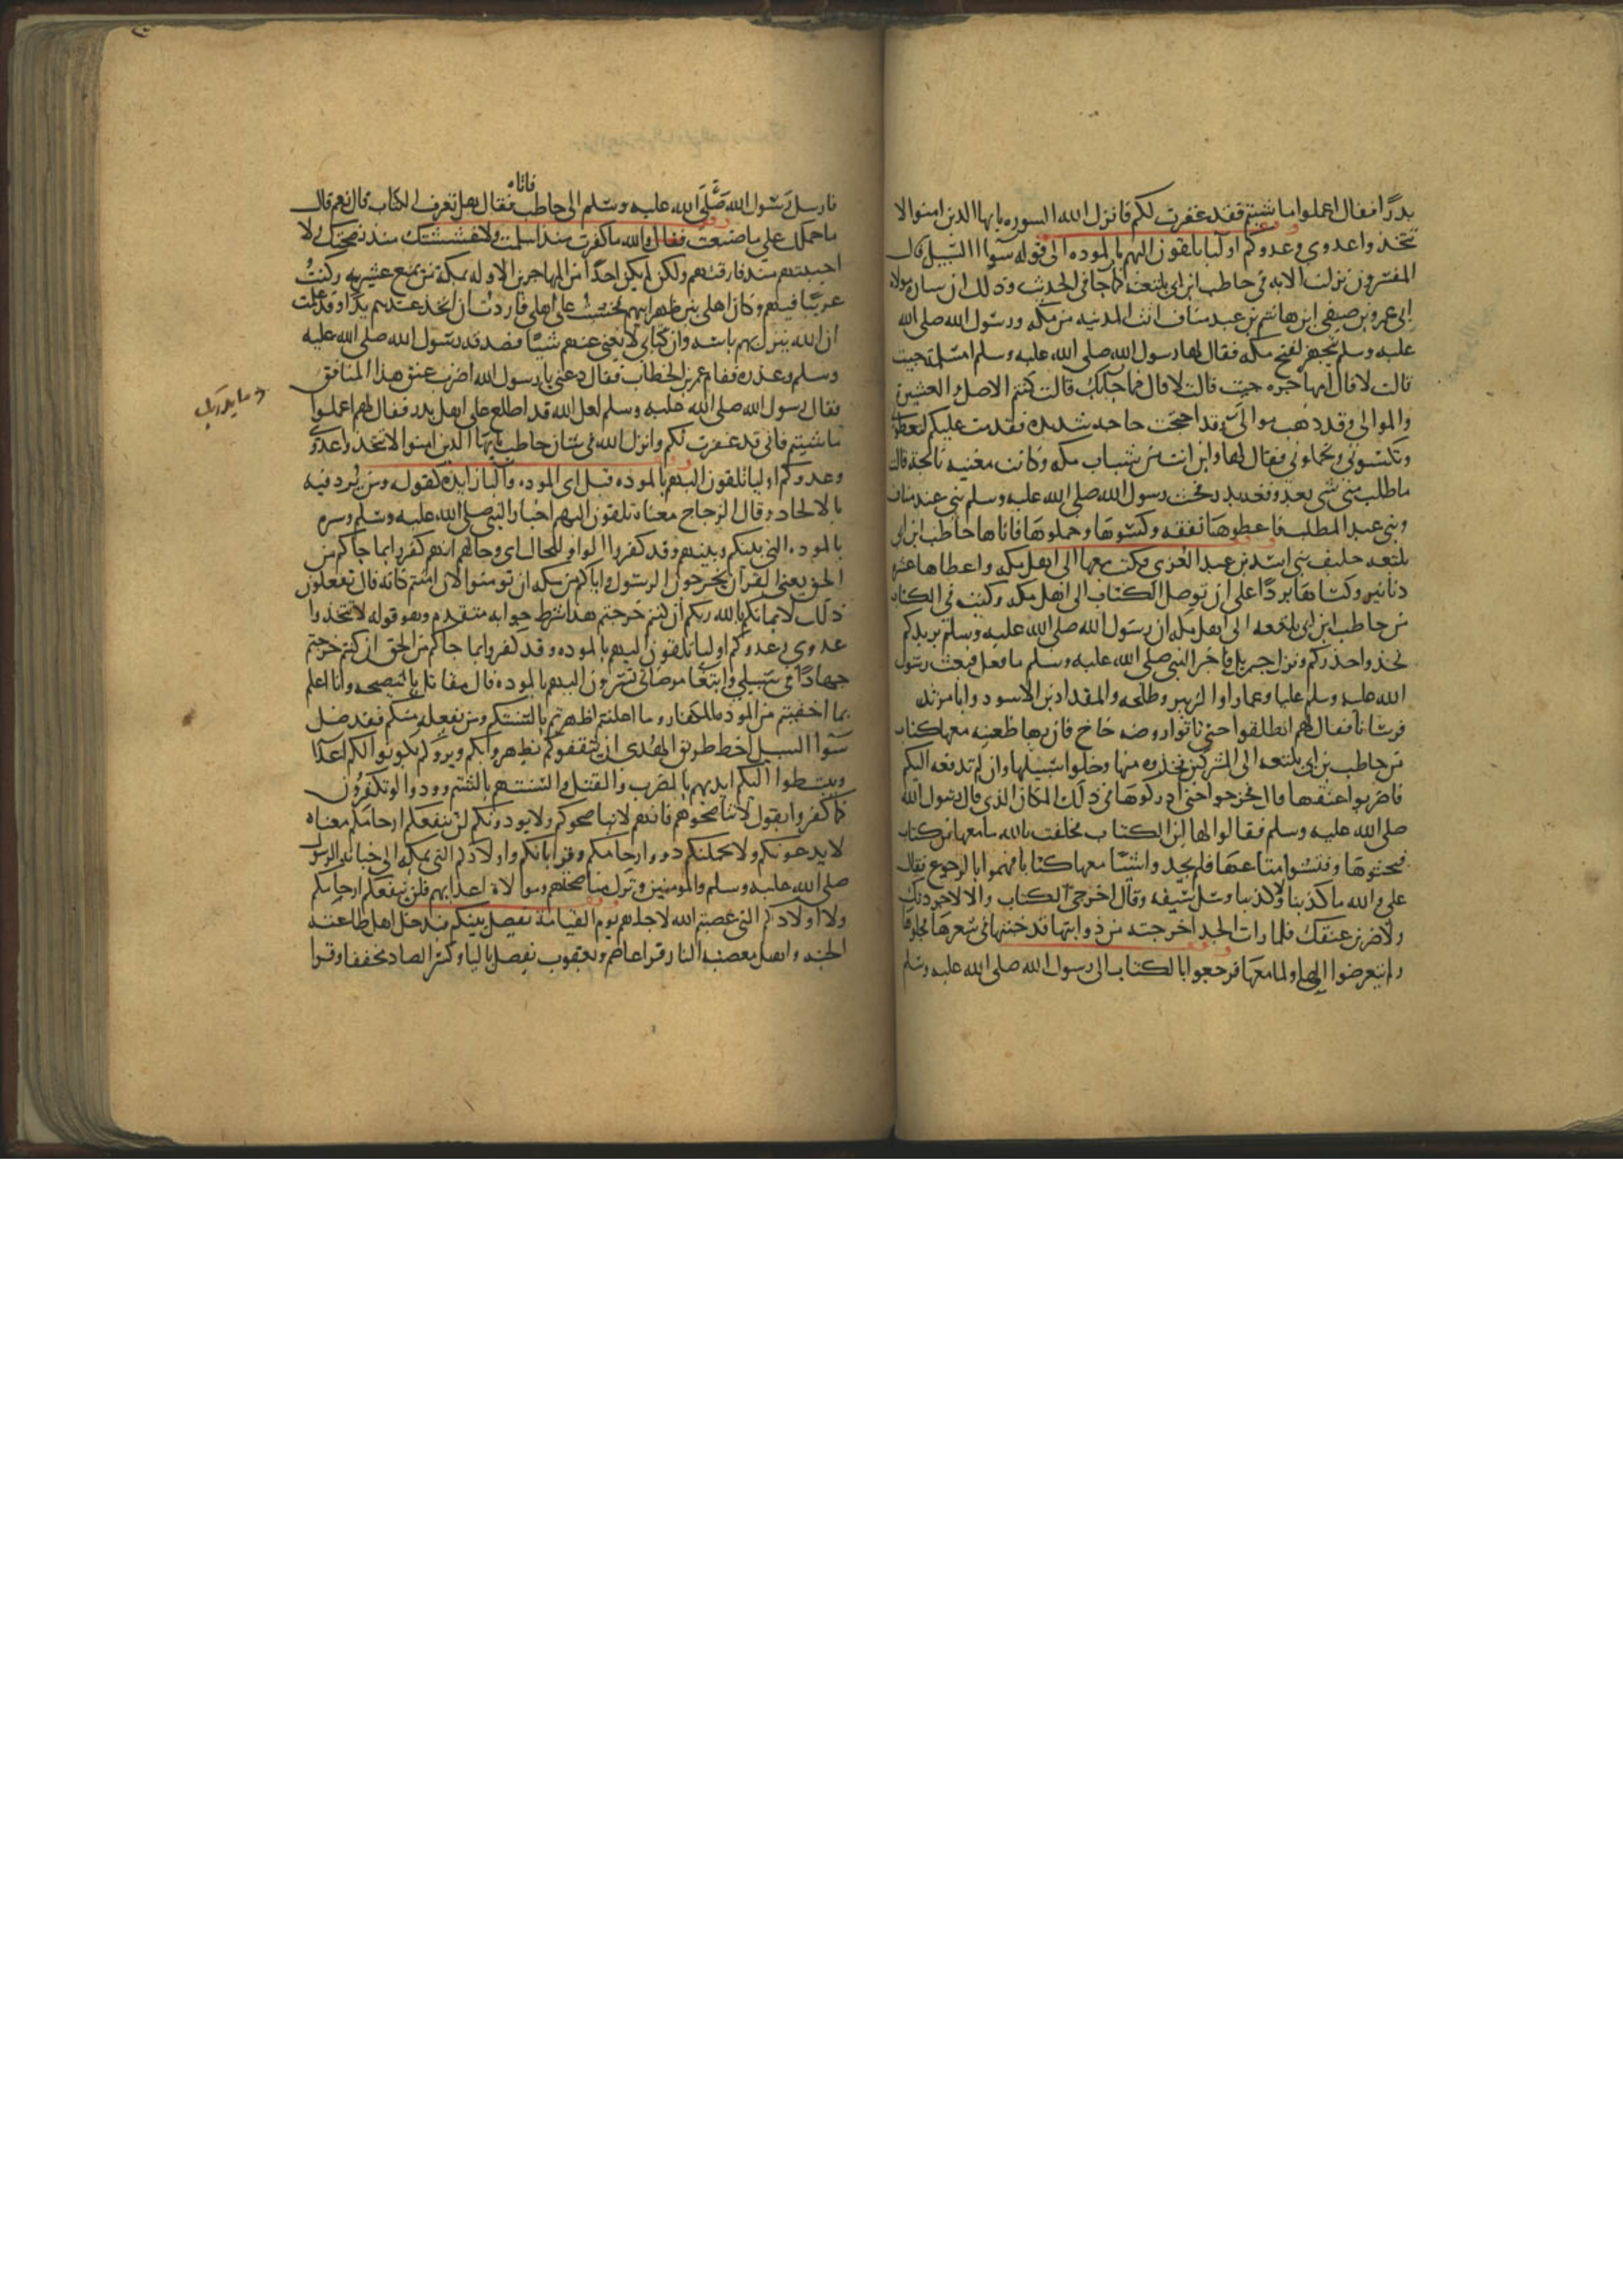 بدرًا فقال اعملوا ما شيتم فقد غفرت لكم فانزل الله السوره يا يها الذين امنوا لا
تتخذوا عدوي وعدوكم اوليا تلقون اليهم بالموده الى قوله سوآ السبيل قال
المفسرون نزلت الايه في حاطب ابن ابي بلتعه كما جا في الحديث وذلك ان ساره مولاه
ابي عمرو بن صيفي ابن هاشم بن عبد مناف اتت المدينه من مكه ورسول الله صلى الله
عليه وسلم يتجهز لفتح مكه فقال لها رسول الله صلى الله عليه وسلم امسلمة جيت
قالت لا قال امهاجره جيت قالت لا قال فما جا بك قالت كنتم الاصل والعشيره
والموالي وقد ذهب موالي وقد احتجت حاجه شديده فقدمت عليكم لتعطوني
وتكسوني وتحملوني فقال لها واين انت من شباب مكه وكانت مغنيه نايحة قالت
ما طلب مني شي بعد وقعه بدر فحث رسول الله صلى الله عليه وسلم بني عبد مناف
وبني عبد المطلب فاعطوها نفقه وكسوها وحملوها فاتاها حاطب ابن ابي
بلتعه حليف بني اسد بن عبد العزى فكتب معها الى اهل مكه واعطاها عشره
دنانير وكساها بردًا على ان توصل الكتاب الى اهل مكه وكتب في الكتاب
من حاطب ابن ابي بلتعه الى اهل مكه ان رسول الله صلى الله عليه وسلم يريدكم
فخذوا حذركم ونزل جبريل فاخبر النبي صلى الله عليه وسلم ما فعل فبعث رسول
الله صلى الله عليه وسلم عليا وعمارا والزبير وطلحه والمقداد بن الاسود وابا مرثد
فرسانا فقال لهم انطلقوا حتى تاتوا روضه خاخ فان بها ظعينه معها كتاب
من حاطب بن ابي بلتعه الى المشركين فخذوه منها وخلوا سبيلها وان لم تدفعه اليكم
فاضربوا عنقها فخرجوا حتى ادركوها في ذلك المكان الذي قال رسول الله
صلى الله عليه وسلم فقالوا لها اين الكتاب فحلفت بالله ما معها من كتاب
فبحثوها وفتشوا متاعها فلم يجدوا شيًا معها كتابا فهموا بالرجوع فقال
علي والله ما كذبنا ولا كذبنا وسل سيفه وقال اخرجي الكتاب والا لاجردنك
ولاضربن عنقك فلما رات الجد اخرجته من ذوابتها قد خبتها في شعرها فخلوها
ولم يتعرضوا اليها ولما معها فرجعوا بالكتاب الى رسول الله صلى الله عليه وسلم
فاتاه
فارسل رسول الله صلى الله عليه وسلم الى حاطب فقال هل تعرف الكتاب قال نعم قال
ما حملك على ما صنعت فقال والله ما كفرت منذ اسلمت ولا غششتك منذ نصحتك ولا
احببتهم منذ فارقتهم ولكن لم يكن احدًا من المهاجرين الا وله بمكة من يمنع عشيرته وكنت
غريبًا فيهم وكان اهلي بين ظهرانيهم فخشيت على اهلي فاردت ان اتخذ عندهم يدًا وقد علمت
ان الله ينزل بهم باسه وان كتابي لا يغني عنهم شيئًا فصدقه رسول الله صلى الله عليه
وسلم وعذره فقام عمر بن الخطاب فقال دعني يا رسول الله اضرب عنق هذا المنافق
وما يدريك
فقال رسول الله صلى الله عليه وسلم لعل الله قد اطلع على اهل بدر فقال لهم اعملوا
ما شيتم فاني قد غفرت لكم وانزل الله في شان حاطب يا يها الذين امنوا لا تتخذوا عدوي
وعدوكم اوليا تلقون اليهم بالموده قيل اي الموده والبا زايده كقوله ومن يرد فيه
بالالحاد وقال الزجاج معناه تلقون اليهم اخبار النبي صلى الله عليه وسلم وسره
بالموده التي بينكم وبينهم وقد كفروا الواو للحال اي وحالهم انهم كفروا بما جاكم من
الحق يعني القرآن يخرجون الرسول واياكم من مكه ان تومنوا لان امنتم كانه قال تفعلون
ذلك لايمانكم بالله ربكم ان كنتم خرجتم هذا شرط جوابه متقدم وهو قوله لا تتخذوا
عدوي وعدوكم اوليا تلقون اليهم بالموده وقد كفروا بما جاكم من الحق ان كنتم خرجتم
جهادًا في سبيلي وابتغا مرضاتي تسرون اليهم بالموده قال مقاتل بالنصيحه وانا اعلم
بما اخفيتم من الموده للكفار وما اعلنتم اظهرتم بالسنتكم ومن يفعله منكم فقد ضل
سوآ السبيل اخطا طريق الهدى ان يثقفوكم يظهروا بكم ويروكم يكونوا لكم اعدآ
ويبسطوا اليكم ايديهم بالضرب والقتل والسنتهم بالشتم وودوا لو تكفرون
كما كفروا يقول لا تناصحوهم فانهم لا يناصحوكم ولا يودونكم لن ينفعكم ارحامكم معناه
لا يدعونكم ولا تحملنكم ذووا ارحامكم وقراباتكم واولادكم التي بمكه الى خيانه الرسول
صلى الله عليه وسلم والمومنين وترك مناصحتهم وموالاة اعدايهم فلن ينفعكم ارحامكم
ولا اولادكم التي عصيتم الله لاجلهم يوم القيامة يفصل بينكم فيدخل اهل طاعته
الجنه واهل معصيه النار قرا عاصم ويعقوب يفصل باليا وكسر الصاد مخففا وقرا